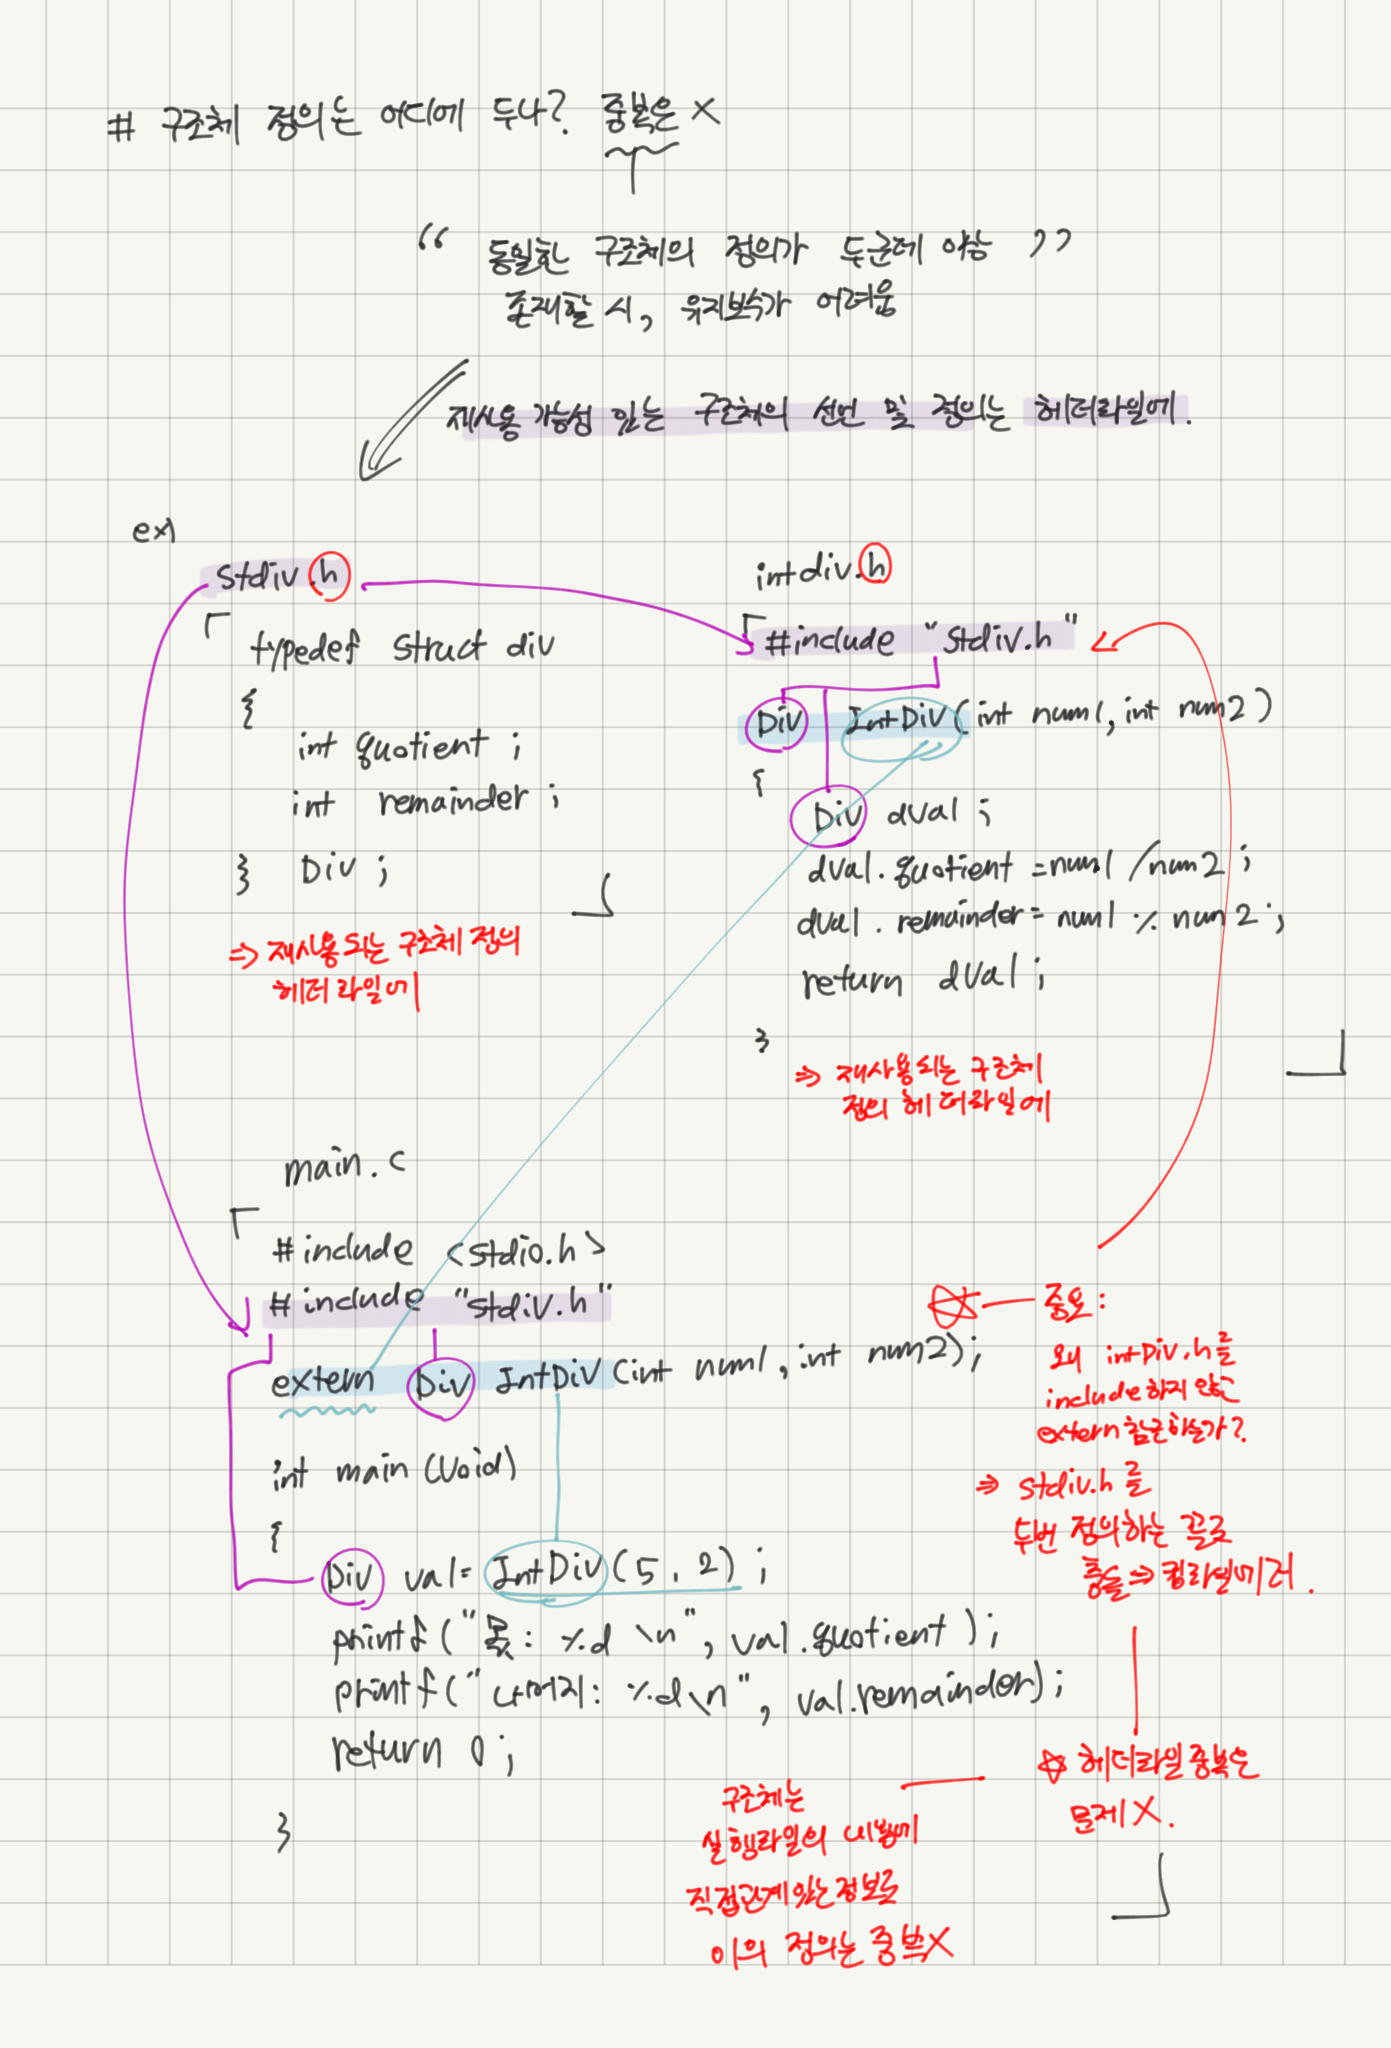 # 구조체 정의는 어디에 두나? 중복은 X
“ 동일한 구조체의 정의가 두군데 이상 ”
존재할 시, 유지보수가 어려움
재사용 가능성 있는 구조체의 선언 및 정의는 헤더파일에.
ex)
stdiv.h
typedef struct div
{
int quotient ;
int remainder ;
} Div ;
⇒ 재사용되는 구조체 정의
헤더파일에
intdiv.h
#include "stdiv.h"
Div IntDiv(int num1, int num2)
{
Div dval ;
dval.quotient = num1 / num2 ;
dval.remainder = num1 % num2 ;
return dval ;
}
⇒ 재사용되는 구조체
정의 헤더파일에
main.c
#include <stdio.h>
#include "stdiv.h"
extern Div IntDiv(int num1, int num2);
int main(void)
{
Div val= IntDiv(5, 2) ;
printf("몫: %d \n", val.quotient );
printf("나머지: %d\n", val.remainder);
return 0 ;
}
중요:
왜 intDiv.h를
include 하지 않고
extern 참근하는가?
⇒ stdiv.h 를
두번 정의하는 꼴로
충돌 ⇒ 컴파일에러.
☆ 헤더파일 중복은
문제 X.
구조체는
실행파일의 내용에
직접관계있는정보로
이의 정의는 중복X